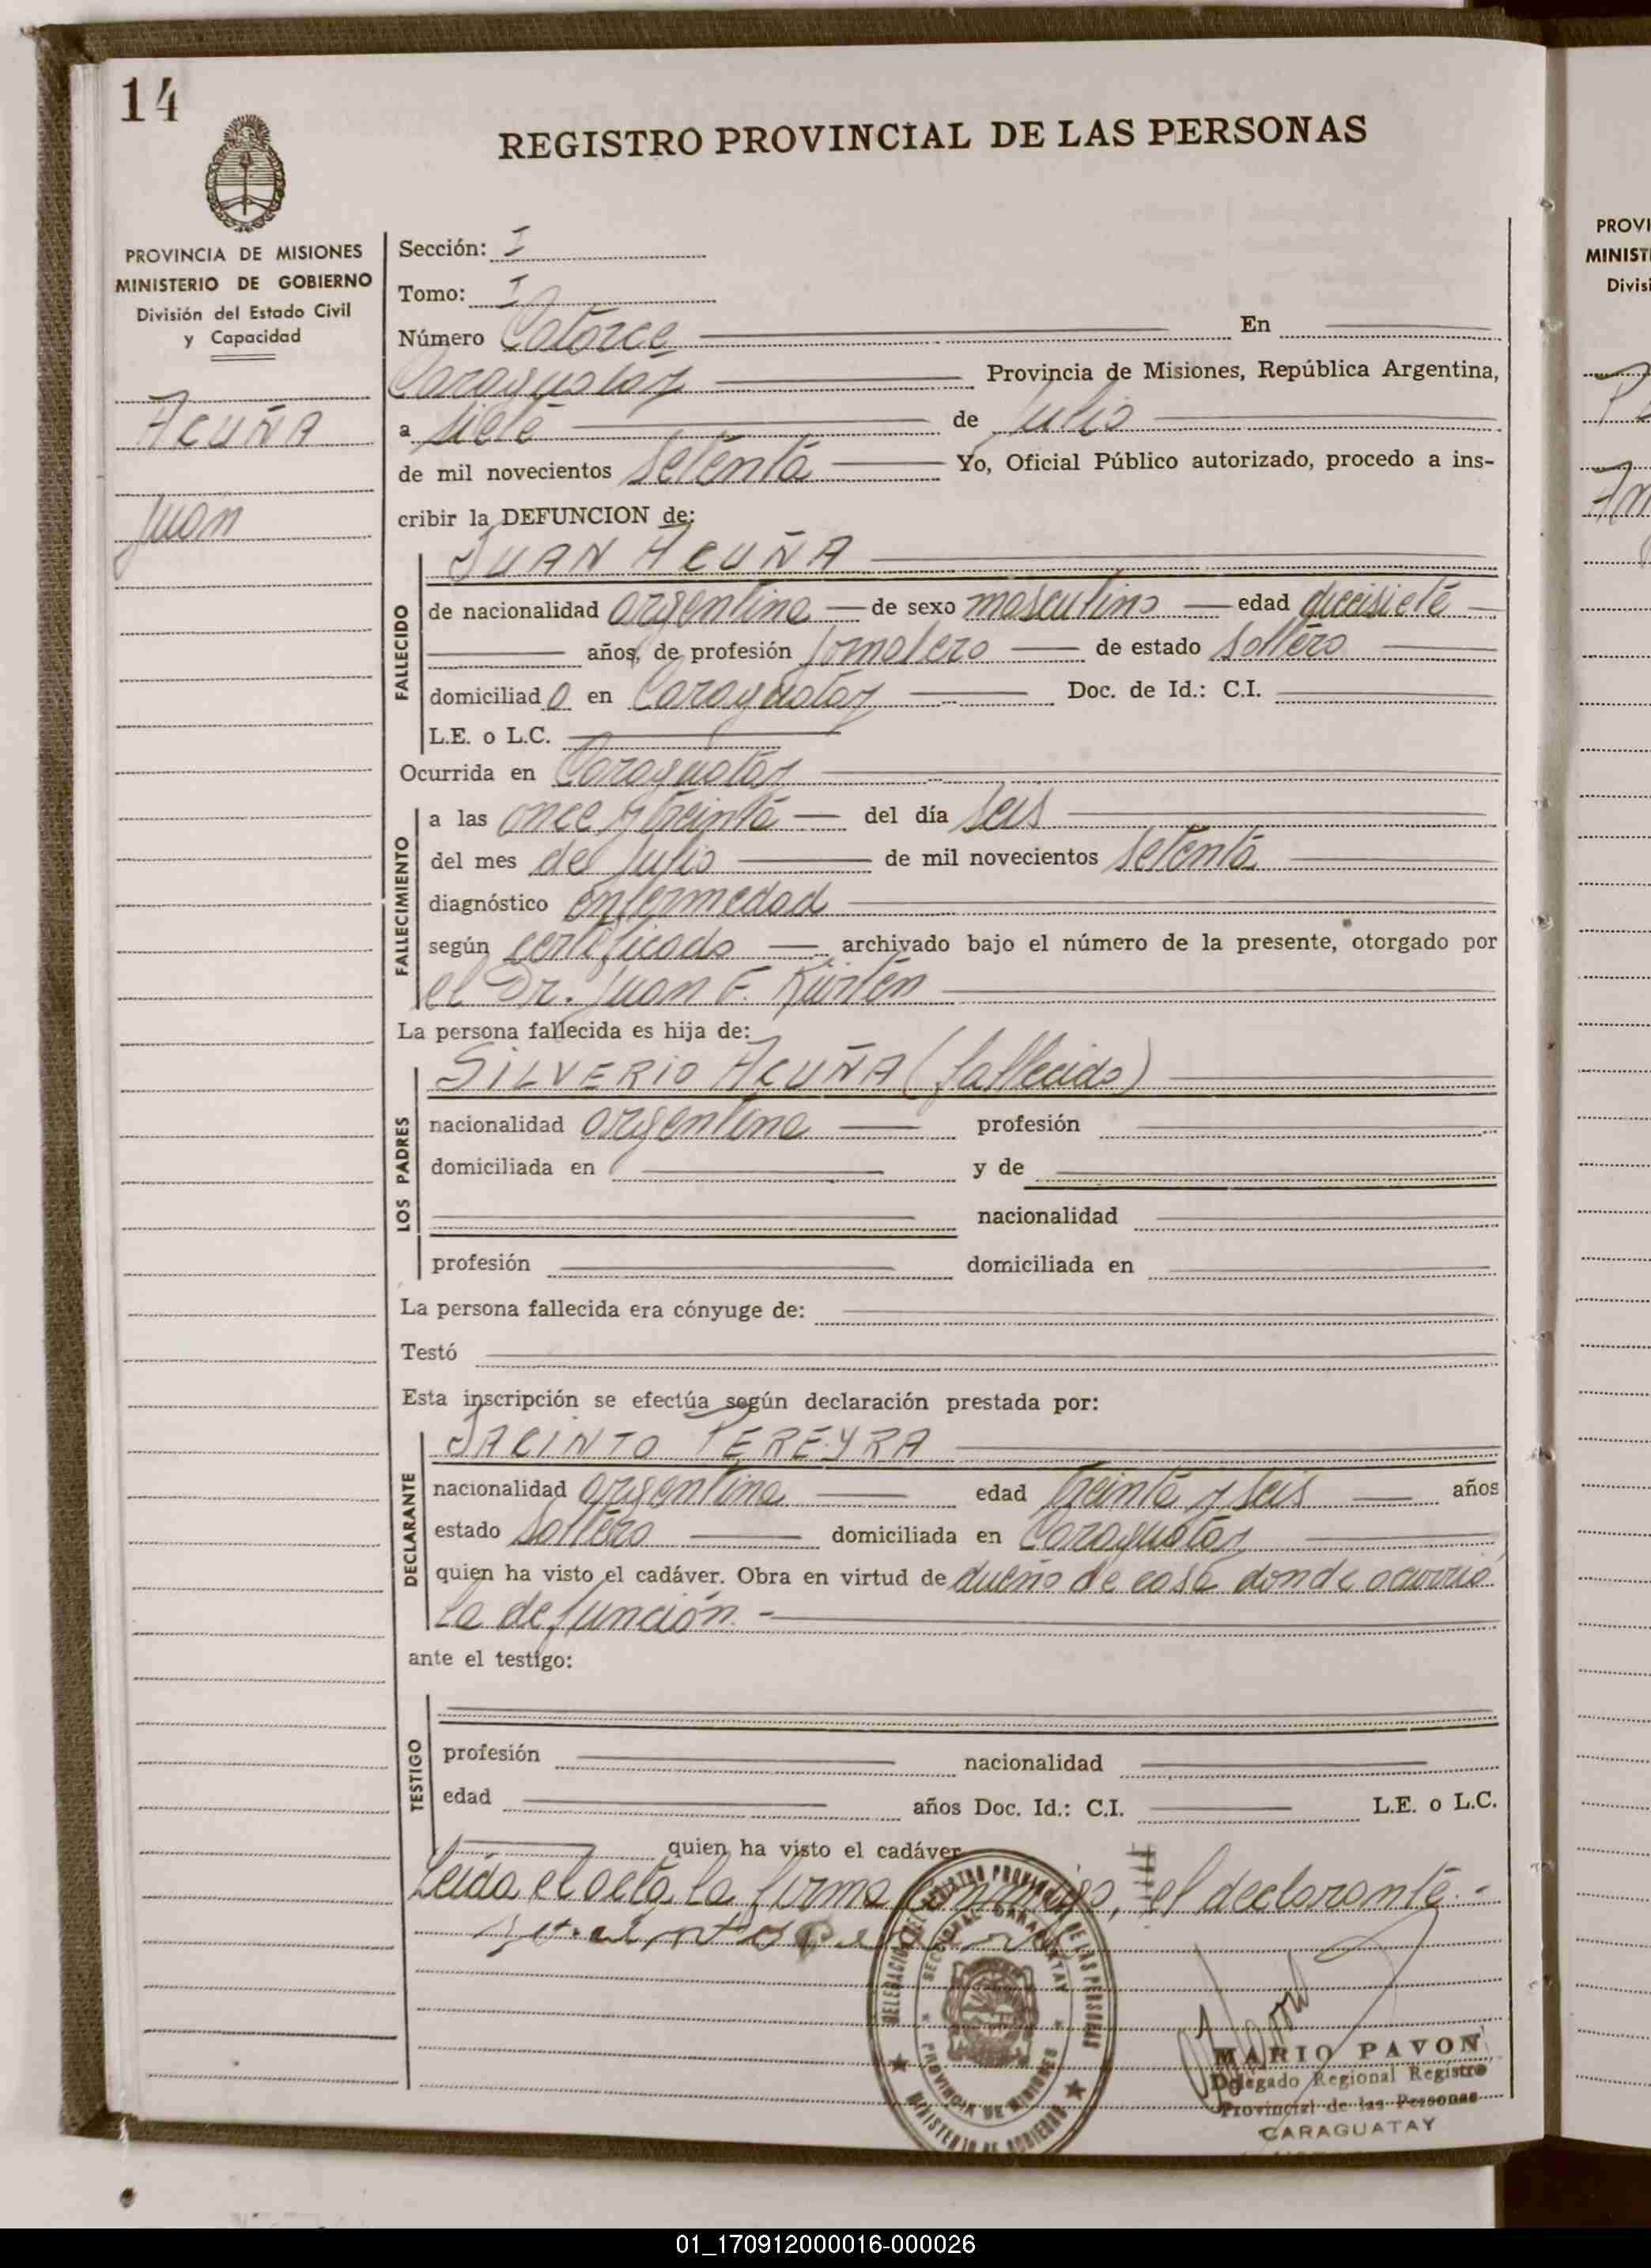 14
REGISTRO PROVINCIAL DE LAS PERSONAS
PROVINCIA DE MISIONES
MINISTERIO DE GOBIERNO
División del Estado Civil
y Capacidad
ACUÑA
Juan
Sección: I
Tomo: I
Número Catorce En
Caraguatay Provincia de Misiones, República Argentina,
a siete de Julio
de mil novecientos setenta Yo, Oficial Público autorizado, procedo a ins-
cribir la DEFUNCION de:
JUAN ACUÑA
FALLECIDO
de nacionalidad argentina de sexo masculino edad diecisiete
años, de profesión Jornalero de estado soltero
domiciliado en Caraguatay Doc. de Id.: C.I.
L.E. o L.C.
Ocurrida en Caraguatay
FALLECIMIENTO
a las once y treinta del día seis
del mes de Julio de mil novecientos setenta
diagnóstico enfermedad
según certificado archivado bajo el número de la presente, otorgado por
el Dr. Juan F. Kürten
La persona fallecida es hija de:
SILVERIO ACUÑA (fallecido)
LOS PADRES
nacionalidad argentina profesión
domiciliada en y de
nacionalidad
profesión domiciliada en
La persona fallecida era cónyuge de:
Testó
Esta inscripción se efectúa según declaración prestada por:
JACINTO PEREYRA
DECLARANTE
nacionalidad argentina edad treinta y seis años
estado soltero domiciliada en Caraguatay
quien ha visto el cadáver. Obra en virtud de dueño de casa donde ocurrió
la defunción.-
ante el testigo:
TESTIGO
profesión nacionalidad
edad años Doc. Id.: C.I. L.E. o L.C.
quien ha visto el cadáver
Leída el acta la firma conmigo, el declarante.-
DELEGACION DEL REGISTRO PROVINCIAL DE LAS PERSONAS
SECCIONAL CARAGUATAY
PROVINCIA DE MISIONES
MINISTERIO DE GOBIERNO
MARIO PAVON
Delegado Regional Registro
Provincial de las Personas
CARAGUATAY
PROVI
MINIST
Divis
01_170912000016-000026